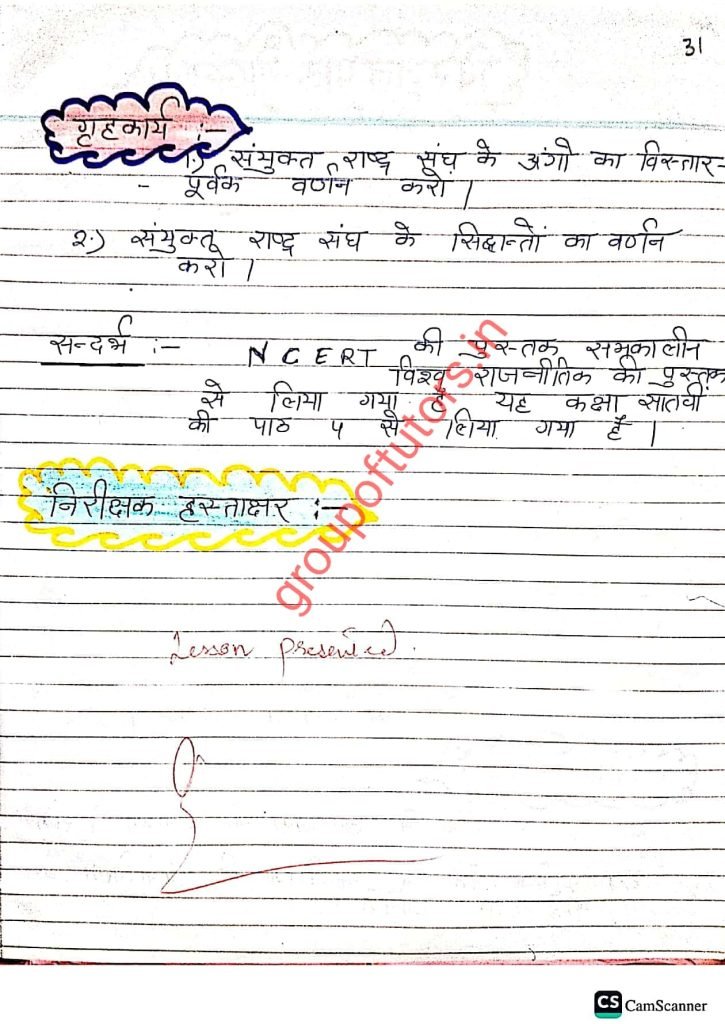 31
गृहकार्य :-
1.) संयुक्त राष्ट्र संघ के अंगो का विस्तार-
- पूर्वक वर्णन करो।
२.) संयुक्त राष्ट्र संघ के सिद्धान्तों का वर्णन
करो।
सन्दर्भ :- NCERT की पुस्तक समकालीन
विश्व राजनीतिक की पुस्तक
से लिया गया है यह कक्षा सातवी
की पाठ ५ से लिया गया है।
निरीक्षक हस्ताक्षर :-
groupoftutors.in
Lesson presented.
CS CamScanner